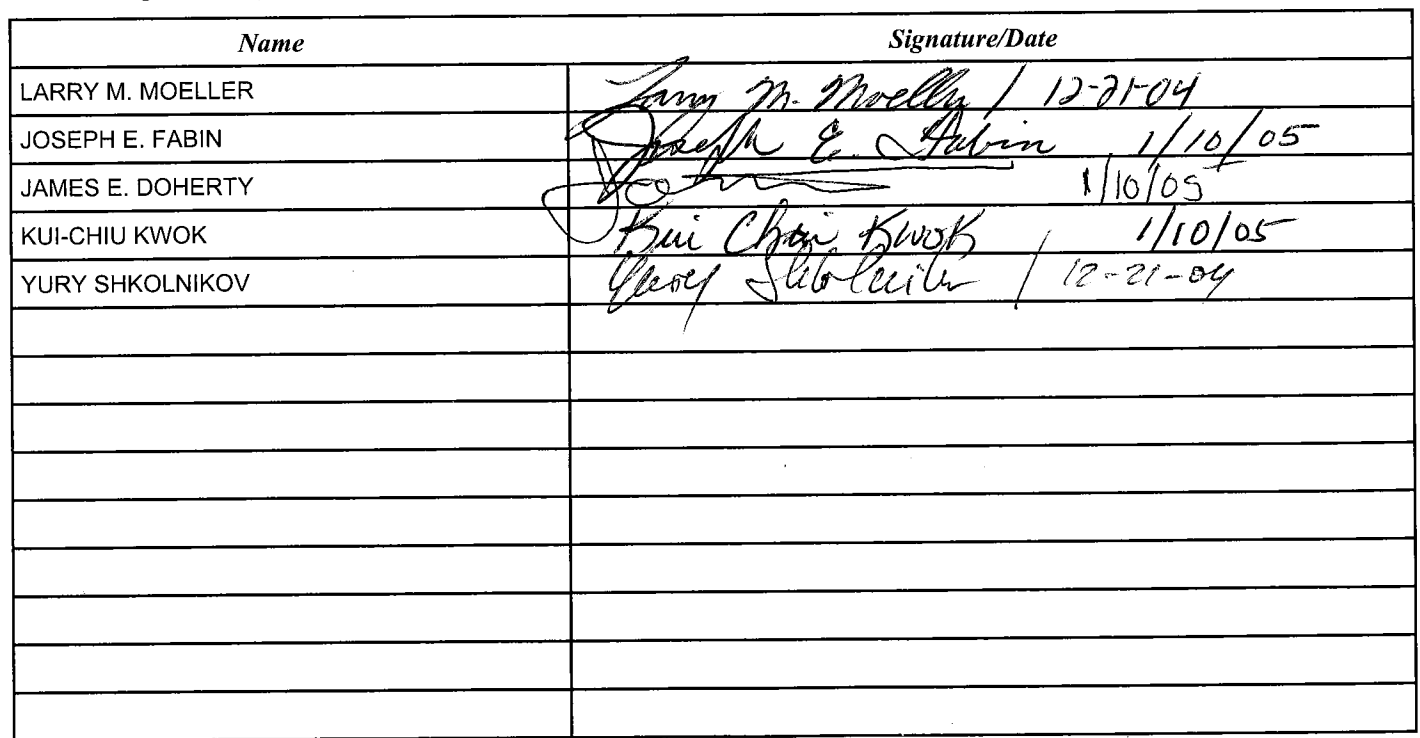 Name Signature/Date
LARRY M. MOELLER Larry M. Moeller / 12-21-04
JOSEPH E. FABIN Joseph E. Fabin 1/10/05
JAMES E. DOHERTY 1/10/05
KUI-CHIU KWOK Kui Chiu Kwok 1/10/05
YURY SHKOLNIKOV / 12-21-04